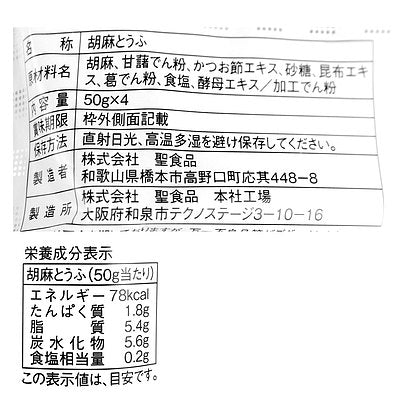 名　称　胡麻とうふ
原材料名　胡麻、甘藷でん粉、かつお節エキス、砂糖、昆布エキ
ス、葛でん粉、食塩、酵母エキス／加工でん粉
内容量　50g×4
賞味期限　枠外側面記載
保存方法　直射日光、高温多湿を避け保存してください。
製造者　株式会社　聖食品
和歌山県橋本市高野口町応其448-8
製造所　株式会社　聖食品　本社工場
大阪府和泉市テクノステージ3-10-16
栄養成分表示
胡麻とうふ(50g当たり)
エネルギー 78kcal
たんぱく質 1.8g
脂　質 5.4g
炭水化物 5.6g
食塩相当量 0.2g
この表示値は、目安です。